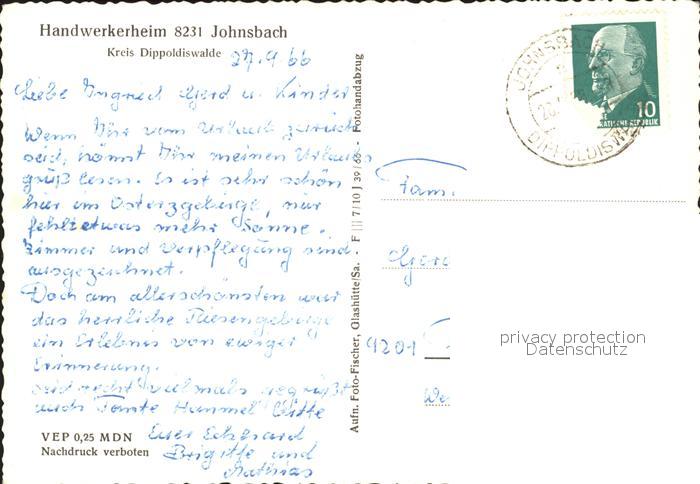 Handwerkerheim 8231 Johnsbach
Kreis Dippoldiswalde
27.9.66
Liebe Ingried Gerd u. Kinder
Wenn Ihr vom Urlaub zurück
seid, könnt Ihr meinen Urlaubs
gruß lesen. Es ist sehr schön
hier im Osterzgebirge, nur
fehlt etwas mehr Sonne.
Zimmer und Verpflegung sind
ausgezeichnet.
Doch am allerschönsten war
das herrliche Riesengebirge
ein Erlebnis von ewiger
Erinnerung.
Seid recht vielmals gegrüßt
auch Tante Hummel bitte
Euer Eckhard
Brigitte und
Mathias
VEP 0,25 MDN
Nachdruck verboten
Aufn. Foto-Fischer, Glashütte/Sa. - F III 7/10 J 39/66 - Fotohandabzug
JOHNSBACH
DIPPOLDISW
10
Fam.
Gerd
9201
We
privacy protection
Datenschutz